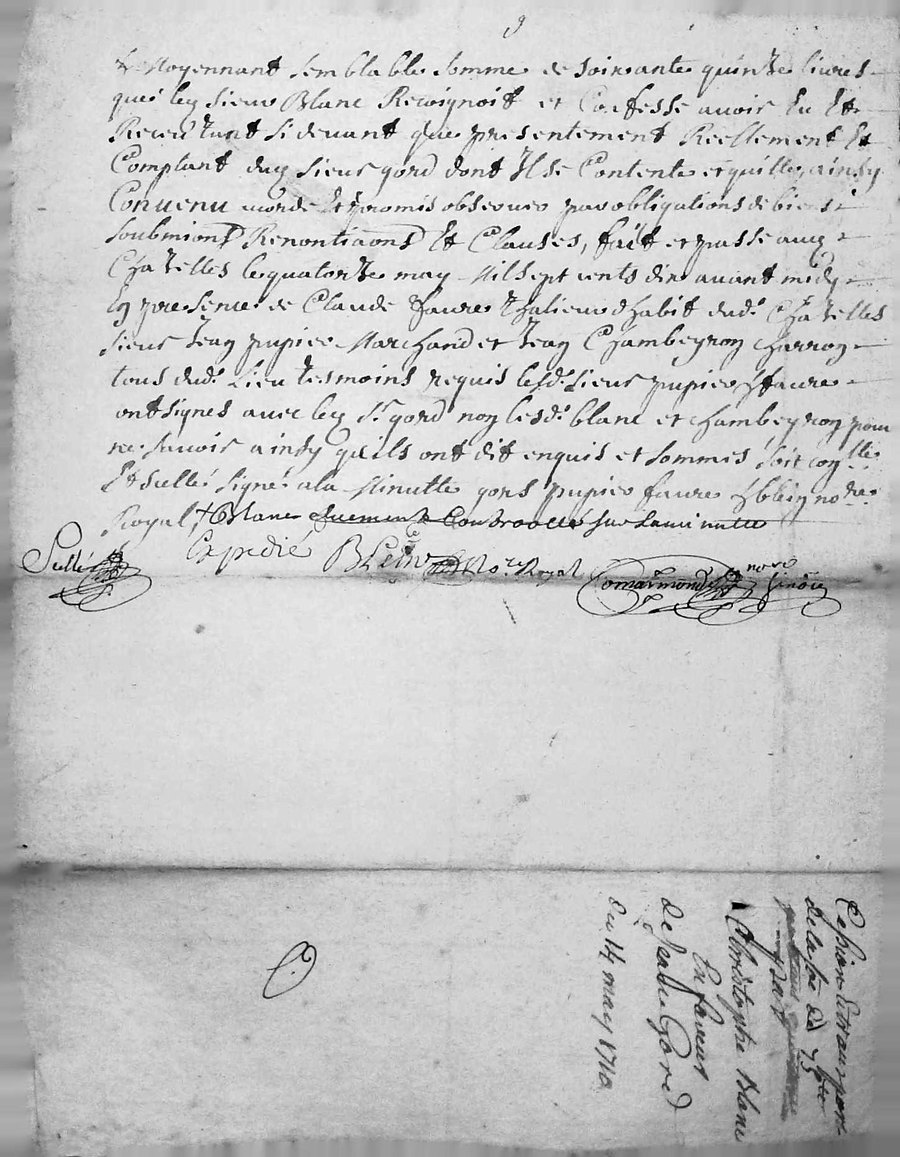 Moyennant semblable somme de soixante quinze livres
que ley sieur Blanc Recoignoit et Confesse avoir Eu Et
Receu tant si devant que presentement Reellement Et
Comptant duy sieur gord dont Il se Contente et quitte, ainsy
Convenu acordé Et promis observer par obligations de biens
soubmions Renontiaons Et Clauses, fait et passé auy
Chazelles le quatorze may Mil sept cents dix avant midy
ey presence de Claude faure habit. dud. Chazelles
sieur Jean pupier Marchand et Jean Chambeyron charron
tous dud. Lieu tesmoins requis lesd. sieurs pupier & faure
ont signes avec ley sr. gord non lesd. blanc et chambeyron pour
ne savoir ainsy quils ont dit enquis et sommes soit
Et scellé signé a la Minutte gord pupier faure & blein nore.
Royal
Scellé Expedié Blein Nore. Royal
Comarmond nore
9
Cession Et transport
de la so de 75 lt
par
Christophe Blanc
En faveur
de Jean Gord
du 14 may 1710